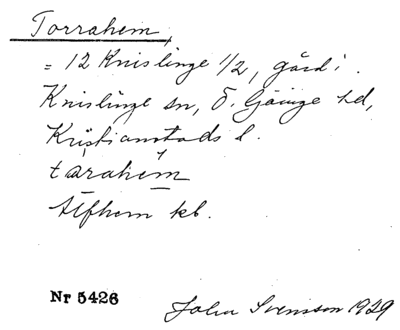 Torrahem,
= 12 Knislinge 1/2, gård i
Knislinge sn, Ö. Göinge hd,
Kristianstads l.
tàrahem
Alfhem kl.
Nr 5426
John Svensson 1929